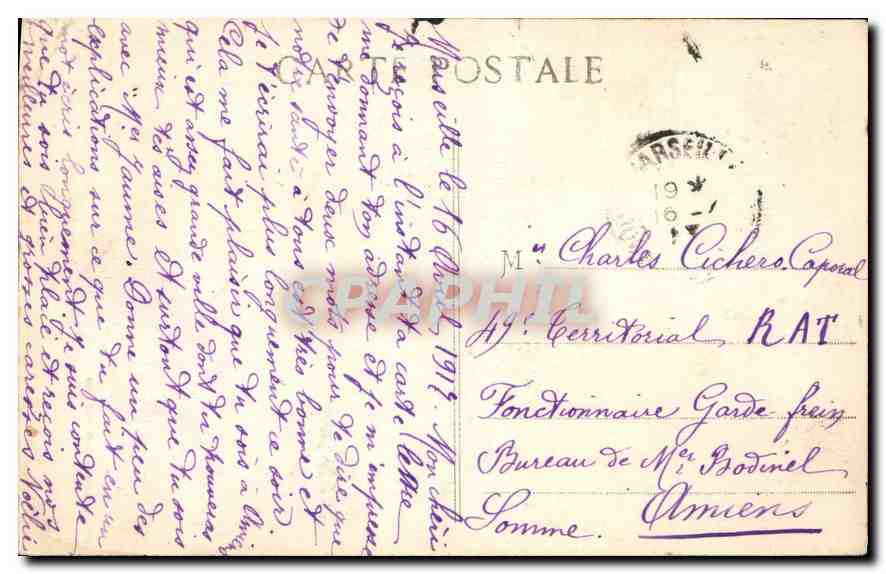 CARTE POSTALE
Marseille le 16 Avril 1917. Mon chéri
Je reçois à l'instant ta carte lettre
me donnant ton adresse et je m'empresse
de t'envoyer deux mots pour te dire que
notre santé à tous est très bonne et
je t'écrirai plus longuement ce soir.
Cela me fait plaisir que tu sois à
qui est assez grande ville dont tu trouveras
mieux tes aises et surtout que tu sois
avec Mer Jaume. Donne un peu des
explications sur ce que tu fait en un
mot écris longuement je suis contente
que tu sois bien placé et reçois nos
meilleures et grosses caresses
MARSEILLE
19 *
16 -
Mr Charles Cichero. Caporal
49e Territorial RAT
Fonctionnaire Garde frein
Bureau de Mer Bodinel
Amiens
Somme.
CPAPHIL